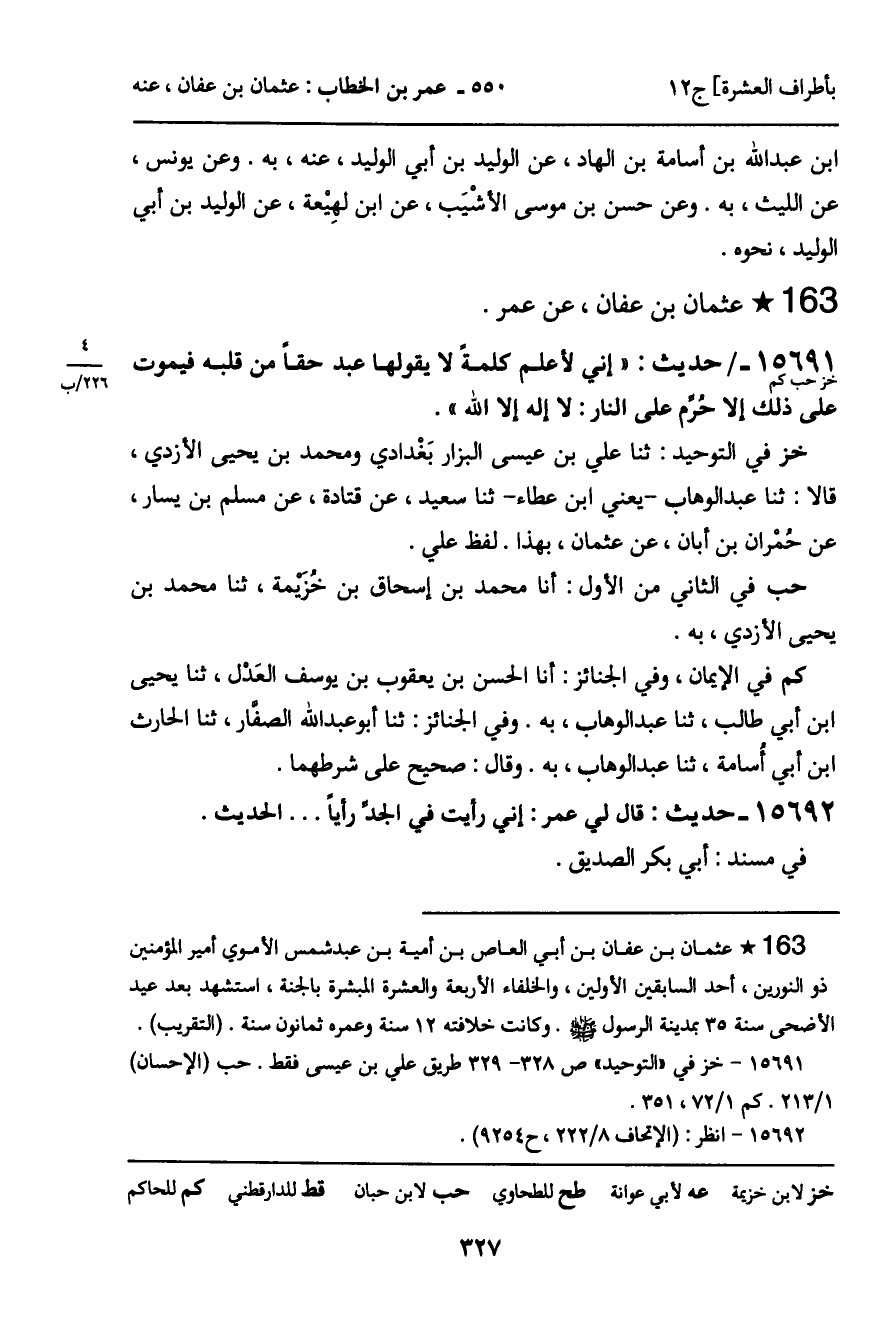 بأطراف العشرة] ج١٢ ٥٥٠ ـ عمر بن الخطاب : عثمان بن عفان ، عنه
ابن عبدالله بن أسامة بن الهاد ، عن الوليد بن أبي الوليد ، عنه ، به . وعن يونس ،
عن الليث ، به . وعن حسن بن موسى الأشْيَب ، عن ابن لهِيْعة ، عن الوليد بن أبي
الوليد ، نحوه .
163 ★ عثمان بن عفان ، عن عمر .
١٥٦٩١ـ/ حديث : « إني لأعلم كلمةً لا يقولها عبد حقاً من قلبه فيموت
خز حب كم
٤
٢٢٦/ب
على ذلك إلا حُرِّم على النار : لا إله إلا الله » .
خز في التوحيد : ثنا علي بن عيسى البزار بَغْدادي ومحمد بن يحيى الأزدي ،
قالا : ثنا عبدالوهاب -يعني ابن عطاء- ثنا سعيد ، عن قتادة ، عن مسلم بن يسار ،
عن حُمْران بن أبان ، عن عثمان ، بهذا . لفظ علي .
حب في الثاني من الأول : أنا محمد بن إسحاق بن خُزَيْمة ، ثنا محمد بن
يحيى الأزدي ، به .
كم في الإيمان ، وفي الجنائز : أنا الحسن بن يعقوب بن يوسف العَدْل ، ثنا يحيى
ابن أبي طالب ، ثنا عبدالوهاب ، به . وفي الجنائز : ثنا أبوعبدالله الصفَّار ، ثنا الحارث
ابن أبي أُسامة ، ثنا عبدالوهاب ، به . وقال : صحيح على شرطهما .
١٥٦٩٢ ـ حديث : قال لي عمر : إني رأيت في الجدِّ رأياً . . . الحديث .
في مسند : أبي بكر الصديق .
163 ★ عثمان بن عفان بن أبي العاص بن أمية بن عبدشمس الأموي أمير المؤمنين
ذو النورين ، أحد السابقين الأولين ، والخلفاء الأربعة والعشرة المبشرة بالجنة ، استشهد بعد عيد
الأضحى سنة ٣٥ بمدينة الرسول ﷺ . وكانت خلافته ١٢ سنة وعمره ثمانون سنة . (التقريب) .
١٥٦٩١ - خز في «التوحيد» ص ٣٢٨- ٣٢٩ طريق علي بن عيسى فقط . حب (الإحسان)
٢١٣/١ . كم ٧٢/١ ، ٣٥١ .
١٥٦٩٢ - انظر : (الإتحاف ٢٢٢/٨ ، ح٩٢٥٤) .
خز لابن خزيمة عه لأبي عوانة طح للطحاوي حب لابن حبان قط للدارقطني كم للحاكم
٣٢٧